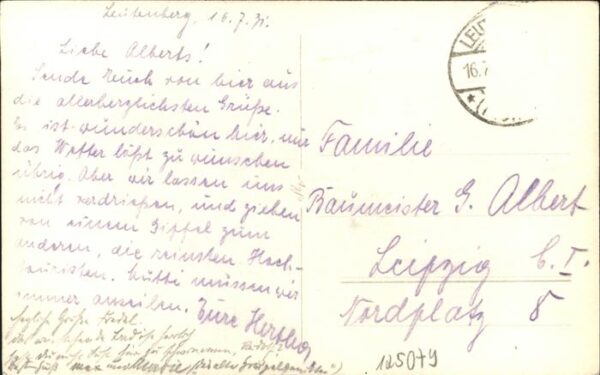 Leutenberg, 16.7.31.
Liebe Alberts!
Sende Euch von hier aus
die allerherzlichsten Grüße.
Es ist wunderschön hier, nur
das Wetter läßt zu wünschen
übrig. Aber wir lassen uns
nicht verdrießen, und ziehen
von einem Gipfel zum
anderen, die reinsten Hoch-
touristen. Mutti müssen wir
immer anseilen. Eure Hertha
Grüße
max und
LEU
16.7
Familie
Baumeister G. Albert
Leipzig C.1.
Nordplatz 8
125079